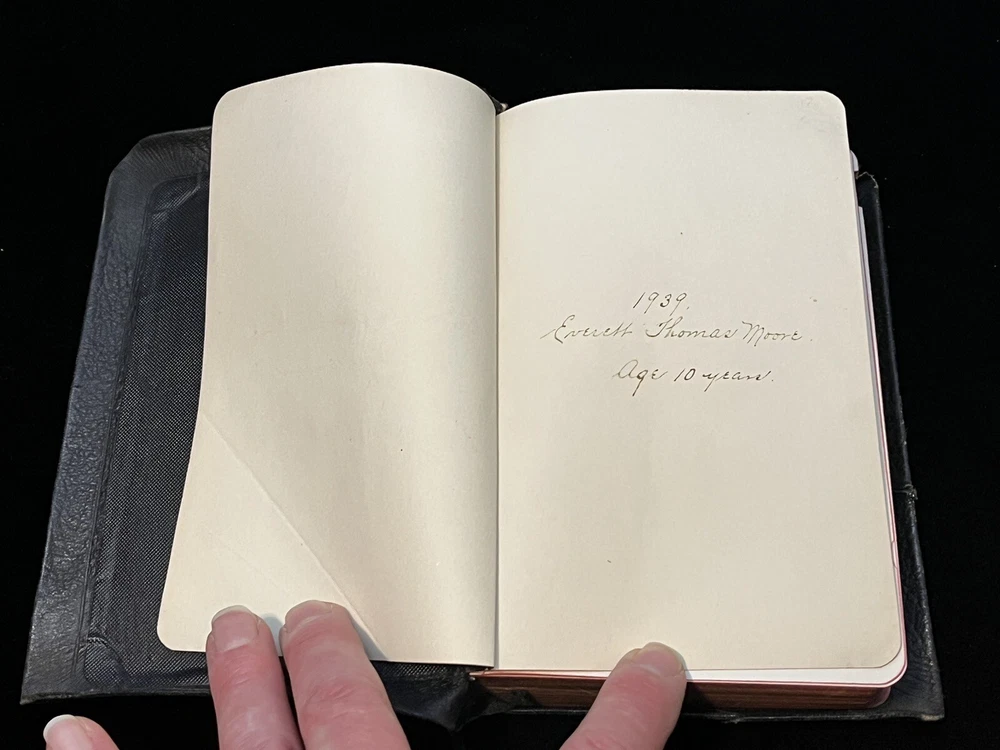 1939.
Everett Thomas Moore.
Age 10 years.